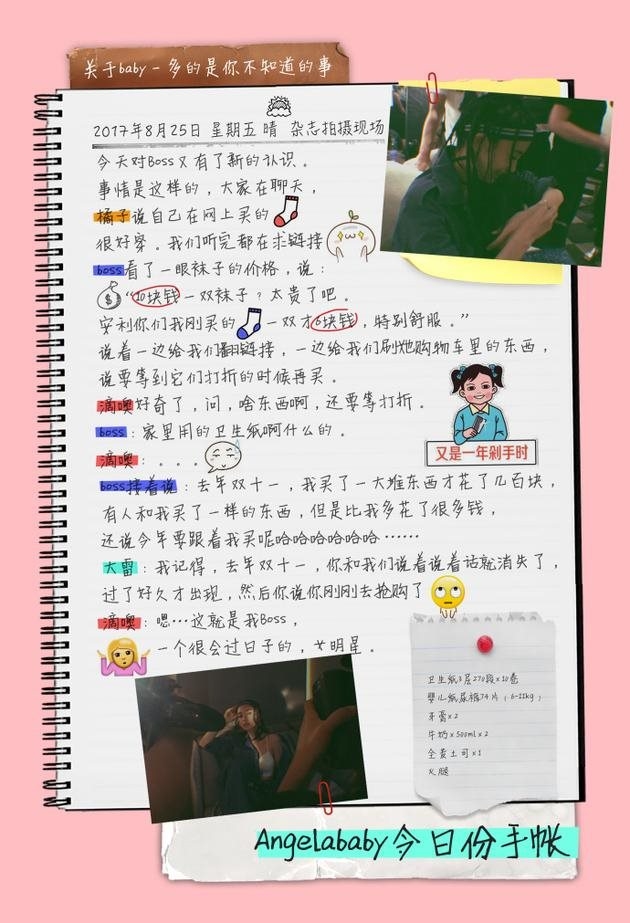 关于baby-多的是你不知道的事
2017年8月25日 星期五 晴 杂志拍摄现场
今天对Boss又有了新的认识。
事情是这样的，大家在聊天，
橘子说自己在网上买的
很好穿。我们听完都在求链接
boss看了一眼袜子的价格，说：
“10块钱一双袜子？太贵了吧。
安利你们我刚买的 一双才6块钱，特别舒服。”
说着一边给我们翻链接，一边给我们刷她购物车里的东西，
说要等到它们打折的时候再买。
滴噢好奇了，问，啥东西啊，还要等打折。
boss：家里用的卫生纸啊什么的。
又是一年剁手时
滴噢：。。。
boss接着说：去年双十一，我买了一大堆东西才花了几百块，
有人和我买了一样的东西，但是比我多花了很多钱，
还说今年要跟着我买呢哈哈哈哈哈哈哈……
大雷：我记得，去年双十一，你和我们说着说着话就消失了，
过了好久才出现，然后你说你刚刚去抢购了
滴噢：嗯…这就是我Boss，
一个很会过日子的，女明星。
卫生纸3层270段x10卷
婴儿纸尿裤74片（6-11kg）
牙膏x2
牛奶x500mlx2
全麦土司x1
火腿
Angelababy今日份手帐